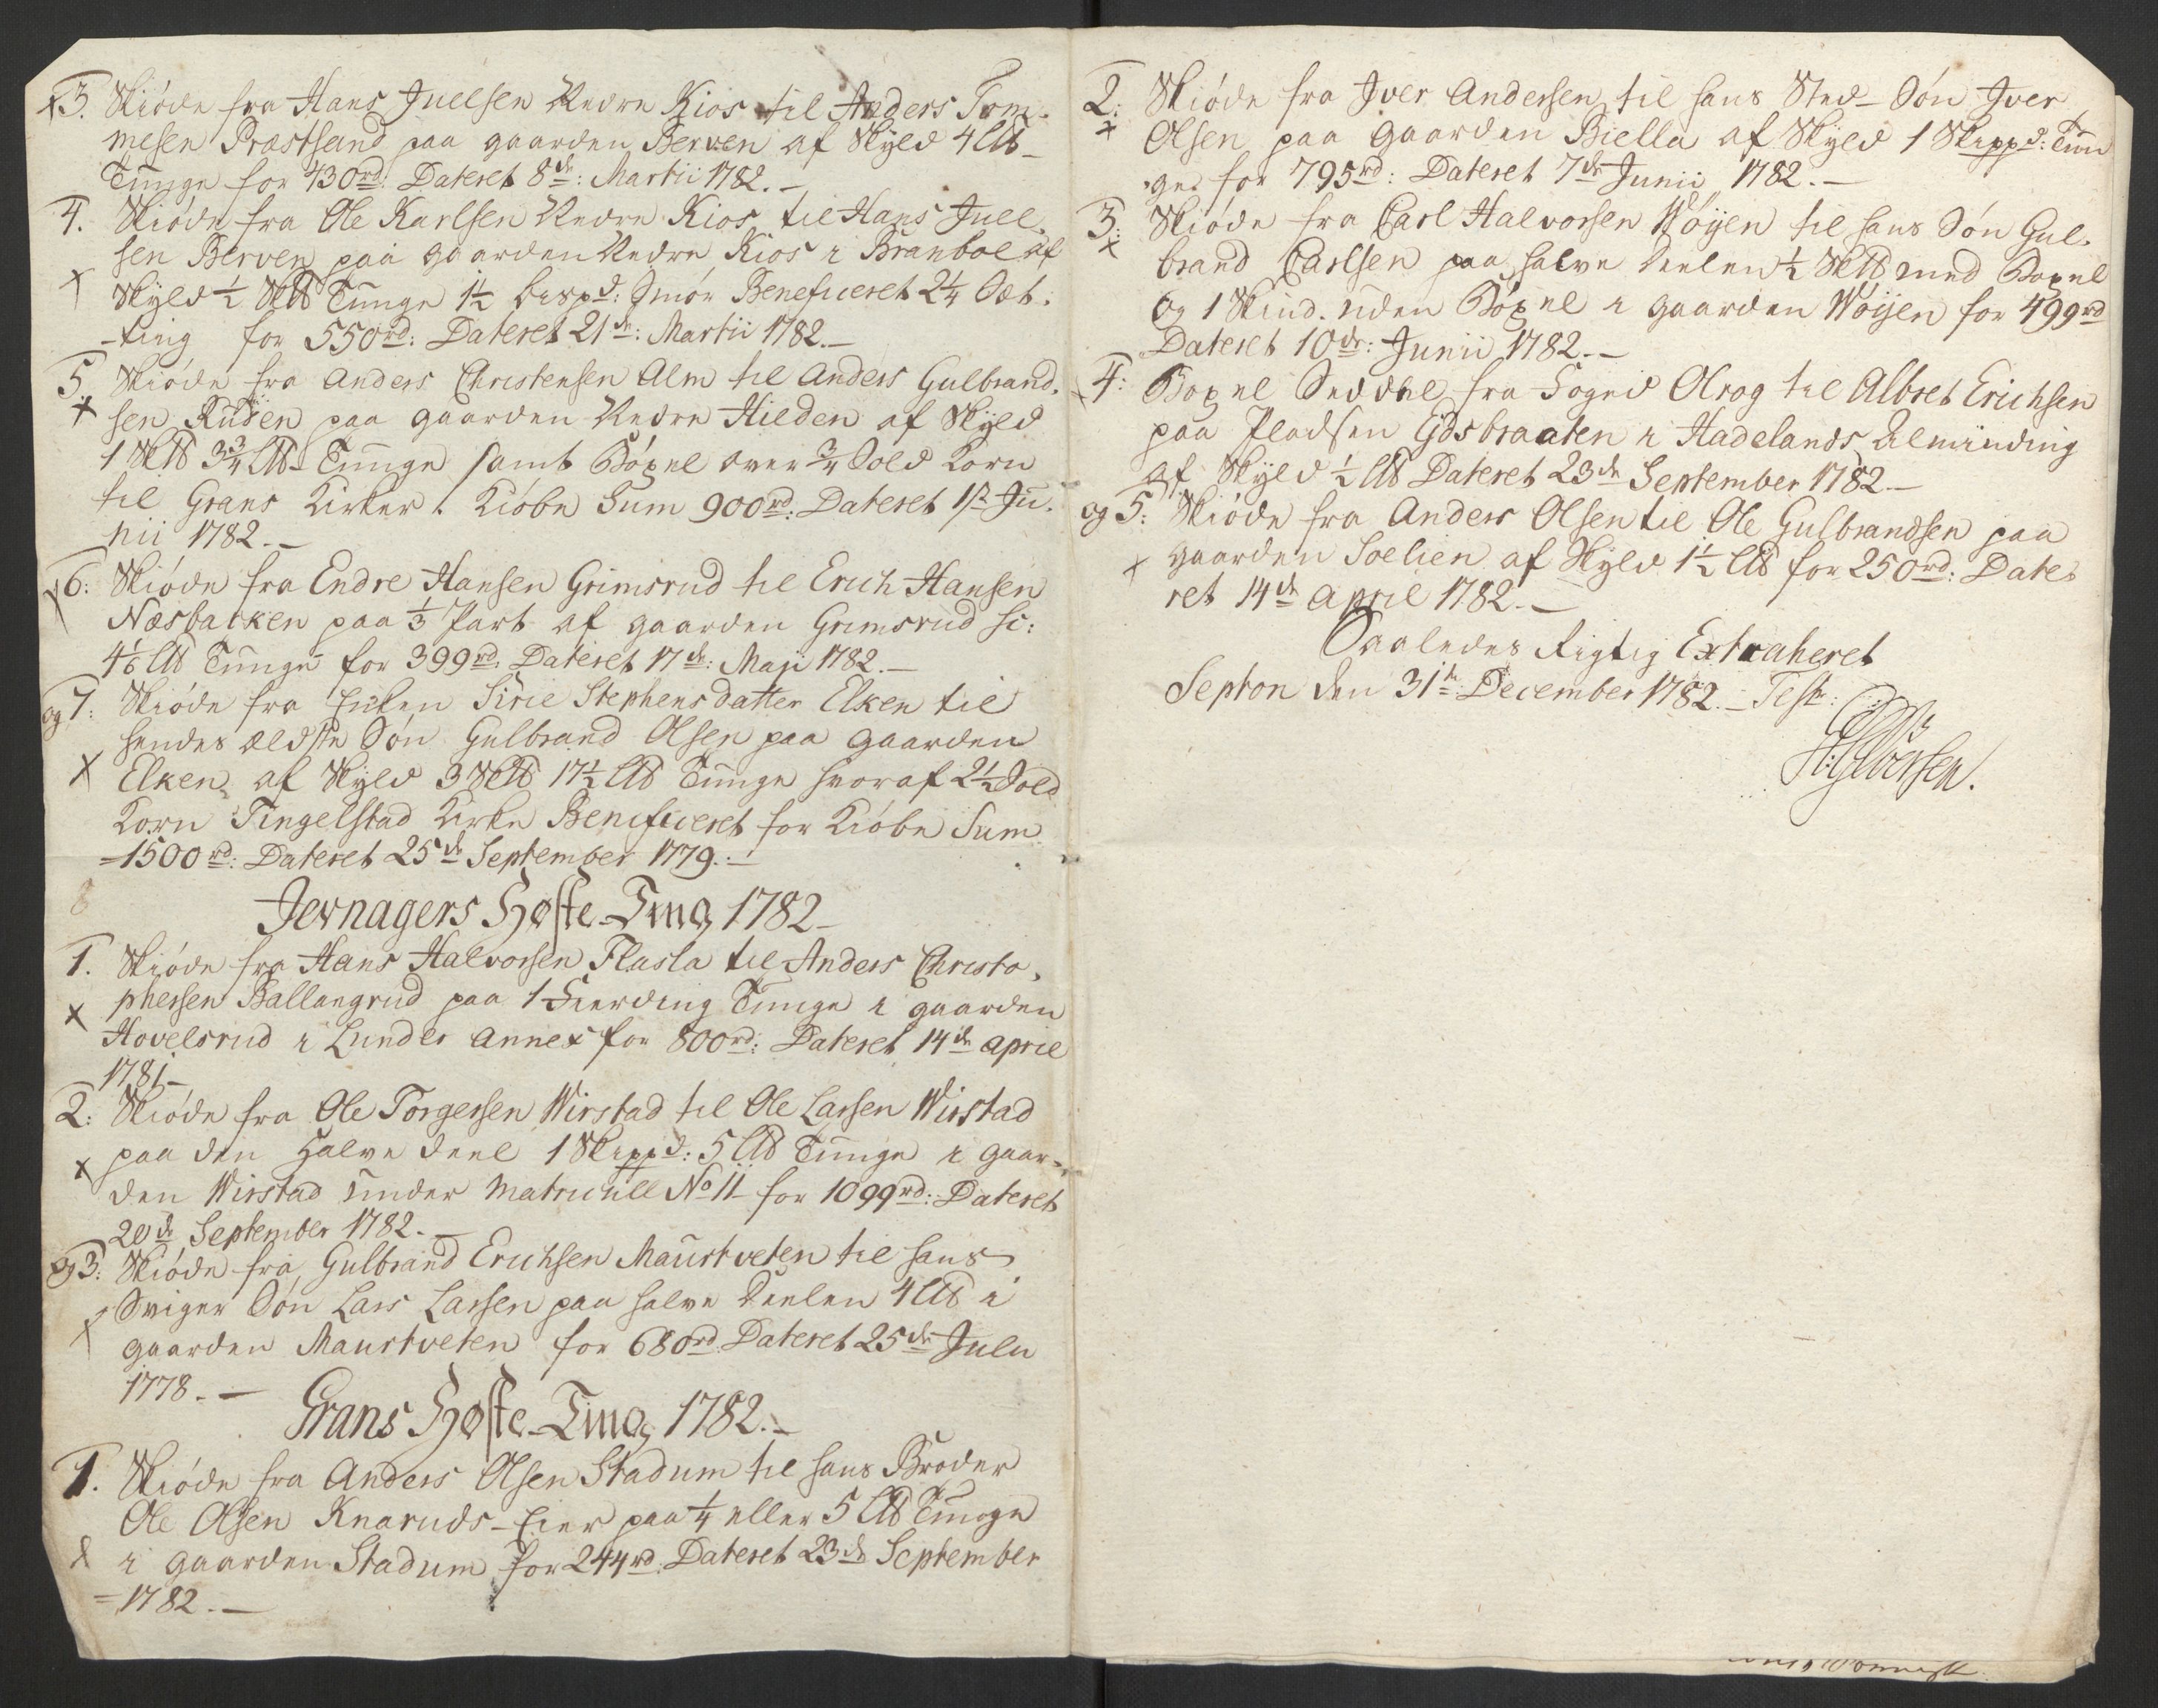 x3. Skiøde fra Hans Juelsen Nedre Kios til Anders Tom-
mesen Præstsand paa gaarden Berven af Skyld 4 L℔
Tunge for 430 rd: Dateret 8de: Martii 1782.—
4. Skiøde fra Ole Karlsen Nedre Kios til Hans Juel-
sen Berven paa gaarden Nedre Kios i Branboe af
x Skyld ½ Sk℔ Tunge 1½ bispd: Smør Beneficeret 2¼ Set-
-ting for 550 rd: Dateret 21de: Martii 1782.—
5. Skiøde fra Anders Christensen Alm til Anders Gulbrand-
x sen Ruden paa gaarden Nedre Hilden af Skyld
1 Sk℔ 3¾ L℔ Tunge samt Bøxel over ¾ Sold Korn
til Grans Kirker. Kiøbe Sum 900 rd: Dateret 1st Ju-
nii 1782.—
x6: Skiøde fra Endre Hansen Grimsrud til Erich Hansen
Næsbacken paa ⅓ Part af gaarden Grimsrud sc:
4⅙ L℔ Tunge for 399 rd Dateret 17de: Maji 1782.—
og 7: Skiøde fra Enken Sirie Stephensdatter Elken til
hendes ældste Søn Gulbrand Olsen paa gaarden
x Elken af Skyld 3 Sk℔ 17½ L℔ Tunge hvoraf 2½ Sold
Korn Tingelstad Kirke Beneficeret for Kiøbe Sum
=1500 rd: Dateret 25de September 1779.—
8
Jevnagers Høste-Ting 1782-
1. Skiøde fra Hans Halvorsen Flasla til Anders Christo-
x phersen Ballangrud paa 1 Fierding Tunge i gaarden
Hovelsrud i Lunder annex for 800 rd: Dateret 14de april
1781-
2: Skiøde fra Ole Torgersen Wirstad til Ole Larsen Wirstad
x paa den Halve Deel 1 Skippd: 5 L℔ Tunge i gaar-
den Wirstad under Matricull No 11 for 1099 rd: Dateret
20de September 1782.—
og 3: Skiøde fra Gulbrand Erichsen Maurtveten til hans
x Sviger Søn Lars Larsen paa halve Deelen 4 L℔ i
gaarden Maurtveten for 680 rd Dateret 25de Julii
1778.—
Grans Høste-Ting 1782.-
1. Skiøde fra Anders Olsen Stadum til hans Broder
Ole Olsen Knaruds-Eier paa ¼ eller 5 L℔ Tunge
x i gaarden Stadum for 244 rd Dateret 23de September
=1782.—
2: Skiøde fra Iver Andersen til hans Sted-Søn Iver
x Olsen paa gaarden Biella af Skyld 1 Skippd: Tun
ge for 795 rd: Dateret 7de Junii 1782.—
3: Skiøde fra Carl Halvorsen Wøyen til hans Søn Gul-
x brand Carlsen paa halve Deelen ½ Sk℔ med Bøxel
og 1 Skind. uden Bøxel i gaarden Wøyen for 499 rd
Dateret 10de: Junii 1782.—
4: Bøxel Seddel fra Foged Olrog til Albret Erichsen
paa Pladsen Eidsbraaten i Hadelands Alminding
af Skyld ½ L℔ Dateret 23de September 1782—
og 5: Skiøde fra Anders Olsen til Ole Gulbrandsen paa
x gaarden Soelien af Skyld 1½ L℔ for 250 rd: Date-
ret 14de april 1782.—
Saaledes Rigtig Extraheret
Septon den 31te December 1782.— Test: